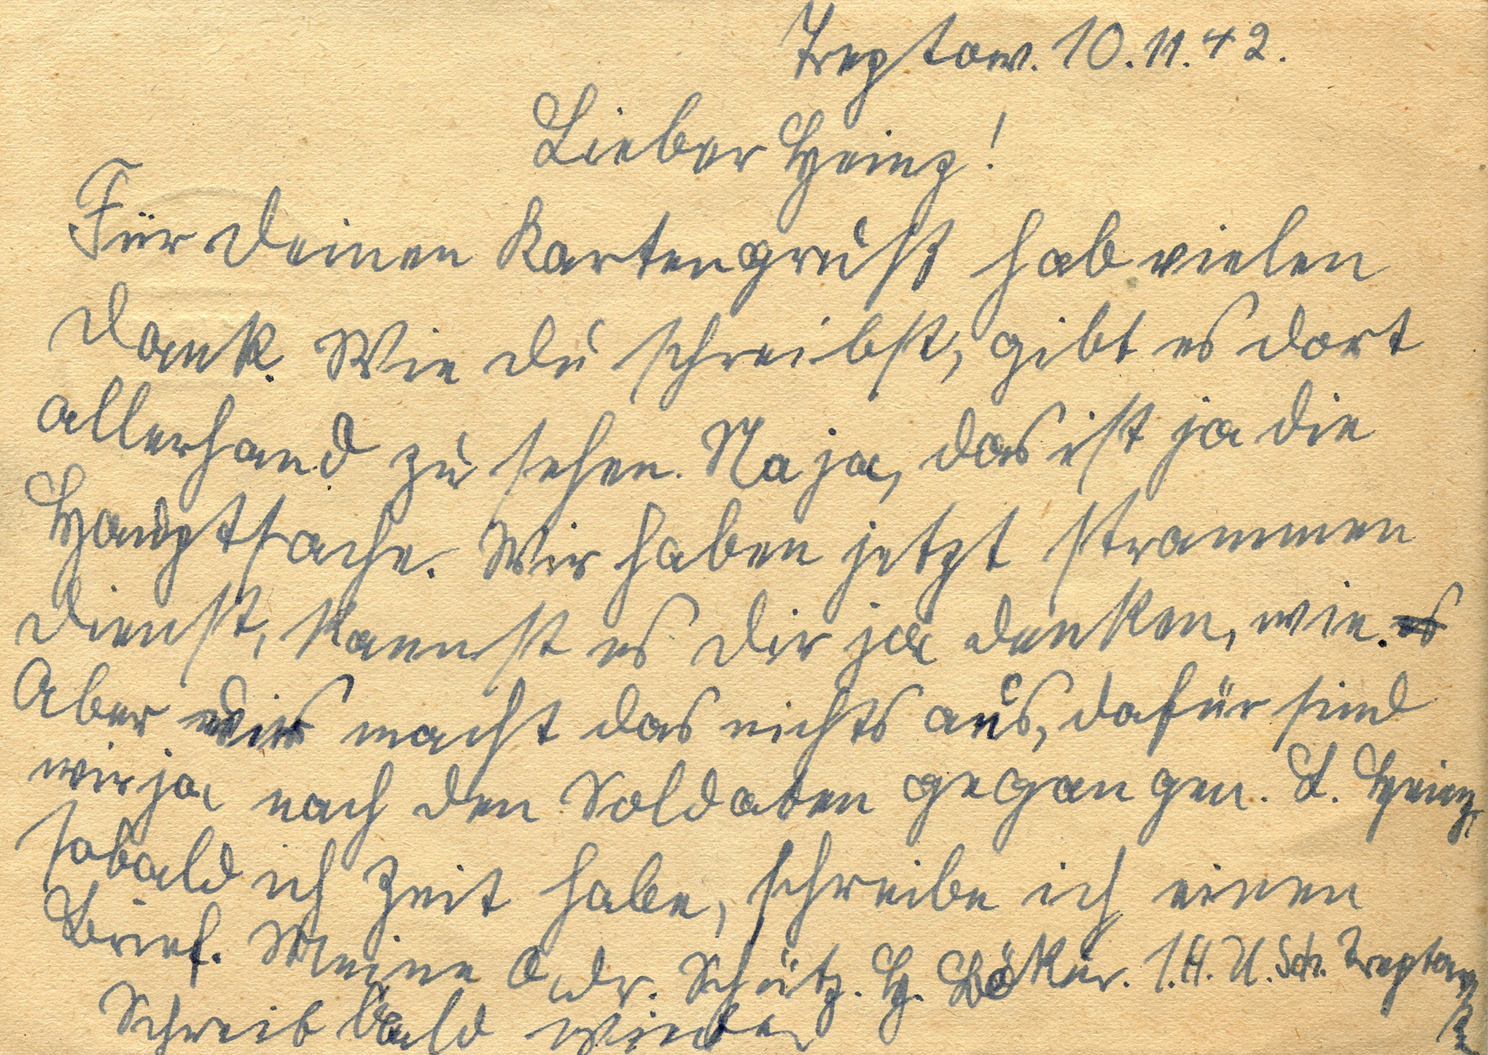 Treptow. 10.11.42.
Lieber Heinz!
Für deinen Kartengruß hab vielen
Dank. Wie du schreibst, gibt es dort
allerhand zu sehen. Na ja, das ist ja die
Hauptsache. Wir haben jetzt strammen
Dienst, kannst es dir ja denken, wie.
Aber uns macht das nichts aus, dafür sind
wir ja nach den Soldaten gegangen. L. Heinz,
sobald ich Zeit habe, schreibe ich einen
Brief. Meine Adr. Schütz. H. Böker. 1.H.U.Sch. Treptow
Schreib bald wieder